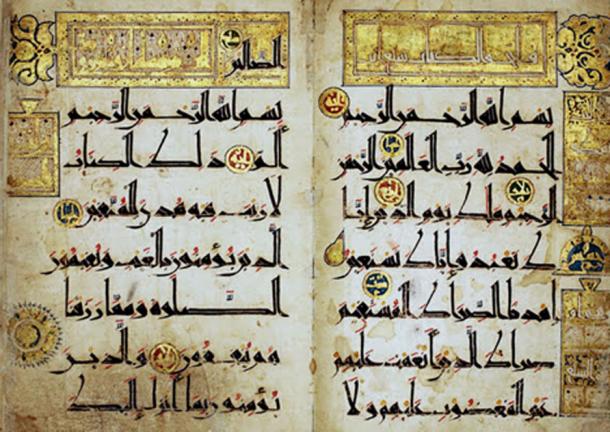 بسم الله الرحمن الرحيم
الحمد لله رب العالمين الرحمن
الرحيم ملك يوم الدين إيا
ك نعبد وإياك نستعين
اهدنا الصراط المستقيم
صراط الذين أنعمت عليهم
غير المغضوب عليهم ولا
الضالين
بسم الله الرحمن الرحيم
الم ذلك الكتاب
لا ريب فيه هدى للمتقين
الذين يؤمنون بالغيب ويقيمون
الصلوة ومما رزقنا
هم ينفقون والذين
يؤمنون بما أنزل إليك